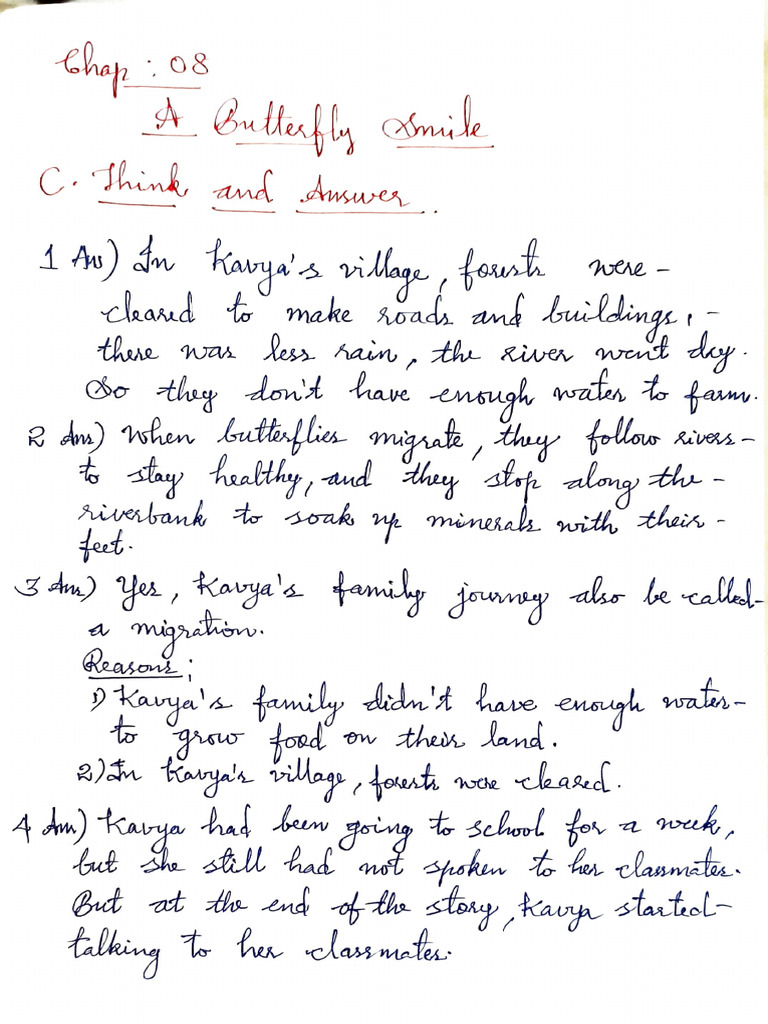 Chap : 08
A Butterfly Smile
C. Think and Answer.
1 Ans) In Kavya's village, forests were -
cleared to make roads and buildings, -
there was less rain, the river went dry.
So they don't have enough water to farm.
2 Ans) When butterflies migrate, they follow rivers -
to stay healthy, and they stop along the -
riverbank to soak up minerals with their -
feet.
3 Ans) Yes, Kavya's family journey also be called -
a migration.
Reasons ;
1) Kavya's family didn't have enough water -
to grow food on their land.
2) In Kavya's village, forests were cleared.
4 Ans) Kavya had been going to school for a week,
but she still had not spoken to her classmates.
But at the end of the story, Kavya started -
talking to her classmates.